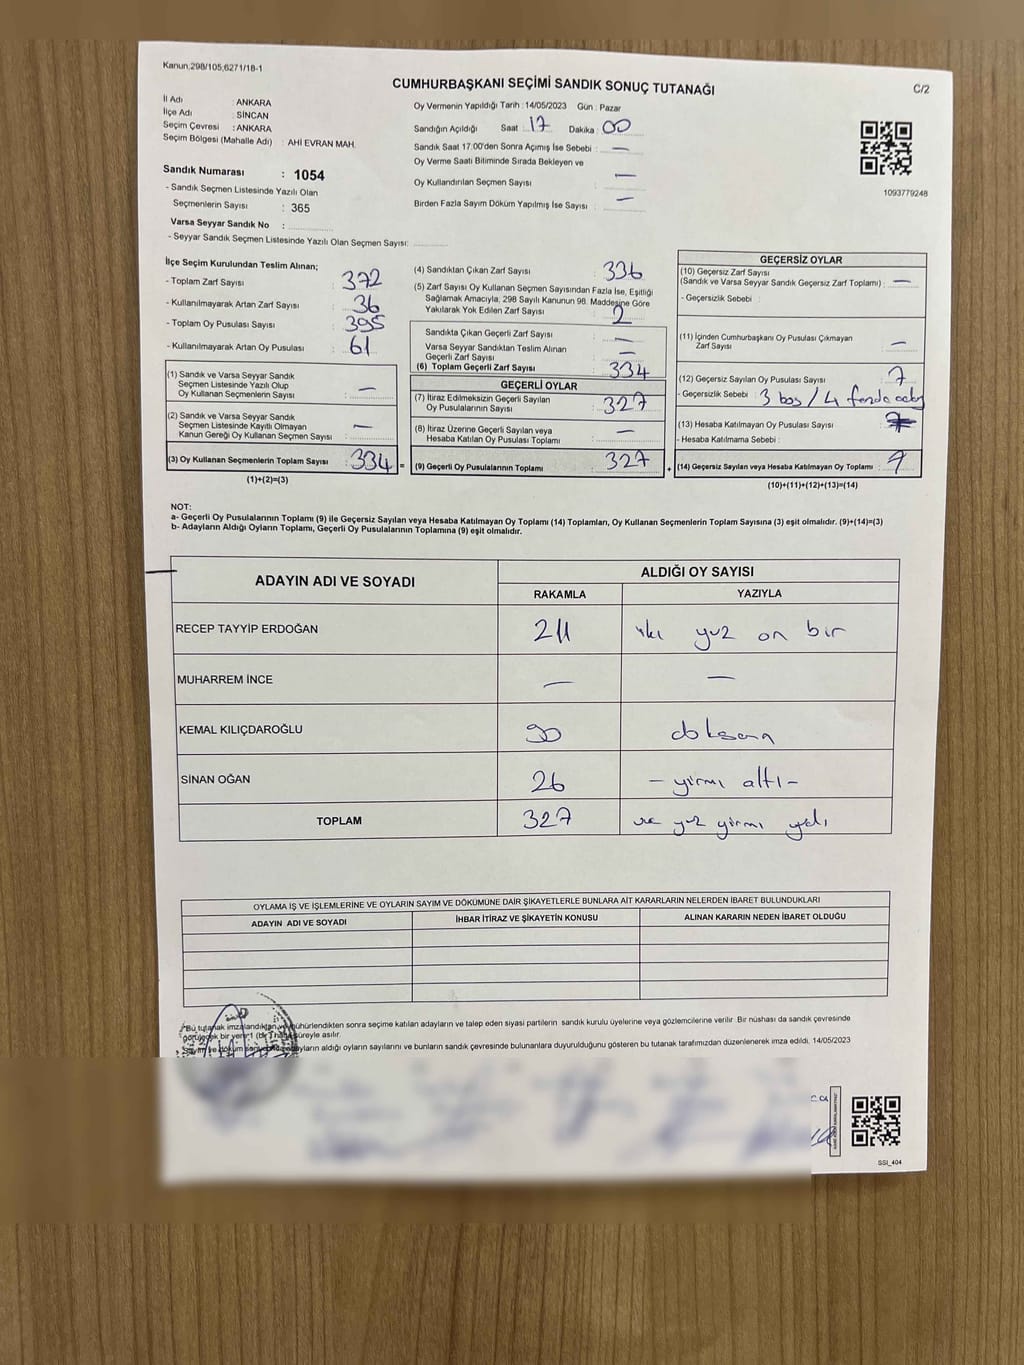 Kanun.298/105,6271/18-1
CUMHURBAŞKANI SEÇİMİ SANDIK SONUÇ TUTANAĞI
C/2
İl Adı : ANKARA
İlçe Adı : SİNCAN
Seçim Çevresi : ANKARA
Seçim Bölgesi (Mahalle Adı) : AHİ EVRAN MAH.
Sandık Numarası : 1054
- Sandık Seçmen Listesinde Yazılı Olan
Seçmenlerin Sayısı : 365
Varsa Seyyar Sandık No :
- Seyyar Sandık Seçmen Listesinde Yazılı Olan Seçmen Sayısı:
Oy Vermenin Yapıldığı Tarih : 14/05/2023 Gün : Pazar
Sandığın Açıldığı Saat : 17 Dakika : 00
Sandık Saat 17:00'den Sonra Açımış İse Sebebi : —
Oy Verme Saati Bitiminde Sırada Bekleyen ve
Oy Kullandırılan Seçmen Sayısı : —
Birden Fazla Sayım Döküm Yapılmış İse Sayısı : —
1093779248
İlçe Seçim Kurulundan Teslim Alınan;
- Toplam Zarf Sayısı : 372
- Kullanılmayarak Artan Zarf Sayısı : 36
- Toplam Oy Pusulası Sayısı : 395
- Kullanılmayarak Artan Oy Pusulası : 61
(1) Sandık ve Varsa Seyyar Sandık
Seçmen Listesinde Yazılı Olup
Oy Kullanan Seçmenlerin Sayısı : —
(2) Sandık ve Varsa Seyyar Sandık
Seçmen Listesinde Kayıtlı Olmayan
Kanun Gereği Oy Kullanan Seçmen Sayısı : —
(3) Oy Kullanan Seçmenlerin Toplam Sayısı : 334 =
(1)+(2)=(3)
(4) Sandıktan Çıkan Zarf Sayısı : 336
(5) Zarf Sayısı Oy Kullanan Seçmen Sayısından Fazla İse, Eşitliği
Sağlamak Amacıyla, 298 Sayılı Kanunun 98. Maddesine Göre
Yakılarak Yok Edilen Zarf Sayısı : 2
Sandıkta Çıkan Geçerli Zarf Sayısı : —
Varsa Seyyar Sandıktan Teslim Alınan
Geçerli Zarf Sayısı : —
(6) Toplam Geçerli Zarf Sayısı : 334
GEÇERLİ OYLAR
(7) İtiraz Edilmeksizin Geçerli Sayılan
Oy Pusulalarının Sayısı : 327
(8) İtiraz Üzerine Geçerli Sayılan veya
Hesaba Katılan Oy Pusulası Toplamı : —
(9) Geçerli Oy Pusulalarının Toplamı : 327 +
GEÇERSİZ OYLAR
(10) Geçersiz Zarf Sayısı
(Sandık ve Varsa Seyyar Sandık Geçersiz Zarf Toplamı) : —
- Geçersizlik Sebebi :
(11) İçinden Cumhurbaşkanı Oy Pusulası Çıkmayan
Zarf Sayısı : —
(12) Geçersiz Sayılan Oy Pusulası Sayısı : 7
- Geçersizlik Sebebi : 3 boş / 4 fazla
(13) Hesaba Katılmayan Oy Pusulası Sayısı :
- Hesaba Katılmama Sebebi :
(14) Geçersiz Sayılan veya Hesaba Katılmayan Oy Toplamı : 7
(10)+(11)+(12)+(13)=(14)
NOT:
a- Geçerli Oy Pusulalarının Toplamı (9) ile Geçersiz Sayılan veya Hesaba Katılmayan Oy Toplamı (14) Toplamları, Oy Kullanan Seçmenlerin Toplam Sayısına (3) eşit olmalıdır. (9)+(14)=(3)
b- Adayların Aldığı Oyların Toplamı, Geçerli Oy Pusulalarının Toplamına (9) eşit olmalıdır.
ADAYIN ADI VE SOYADI
ALDIĞI OY SAYISI
RAKAMLA YAZIYLA
RECEP TAYYİP ERDOĞAN 211 iki yuz on bir
MUHARREM İNCE — —
KEMAL KILIÇDAROĞLU 90 doksan
SİNAN OĞAN 26 - yirmi altı -
TOPLAM 327 üç yüz yirmi yedi
OYLAMA İŞ VE İŞLEMLERİNE VE OYLARIN SAYIM VE DÖKÜMÜNE DAİR ŞİKAYETLERLE BUNLARA AİT KARARLARIN NELERDEN İBARET BULUNDUKLARI
ADAYIN ADI VE SOYADI İHBAR İTİRAZ VE ŞİKAYETİN KONUSU ALINAN KARARIN NEDEN İBARET OLDUĞU
Bu tutanak imzalandıktan ve mühürlendikten sonra seçime katılan adayların ve talep eden siyasi partilerin sandık kurulu üyelerine veya gözlemcilerine verilir. Bir nüshası da sandık çevresinde
görülecek bir yere 1 (bir) hafta süreyle asılır.
adayların aldığı oyların sayılarını ve bunların sandık çevresinde bulunanlara duyurulduğunu gösteren bu tutanak tarafımızdan düzenlenerek imza edildi. 14/05/2023
SSI_404